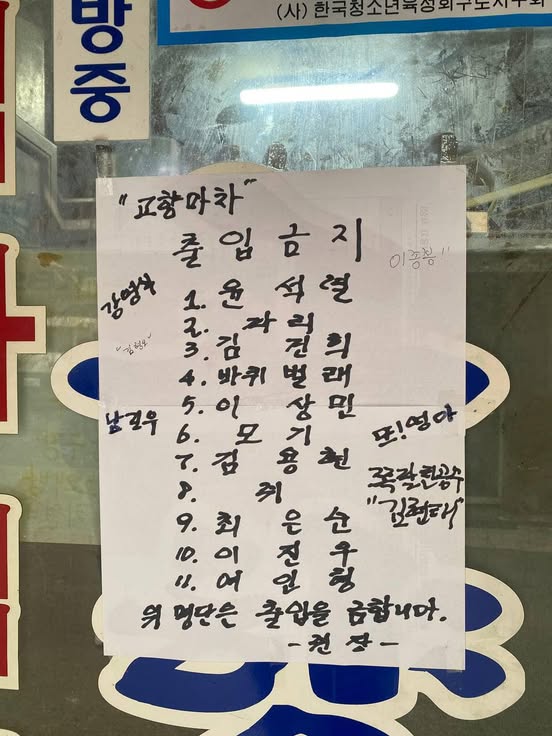 방중
(사) 한국청소년육성회구로지구회
"고향마차"
출 입 금 지
이종봉"
강영식
1. 윤 석 열
2. 파 리
3. 김 건 희
4. 바퀴 벌 레
5. 이 상 민
6. 모 기
또!영아
7. 김 용 현
쪽팔린공수
"김현태"
8. 쥐
9. 최 은 순
10. 이 진 우
11. 여 인 형
위 명단은 출입을 금합니다.
- 쥔 장 -